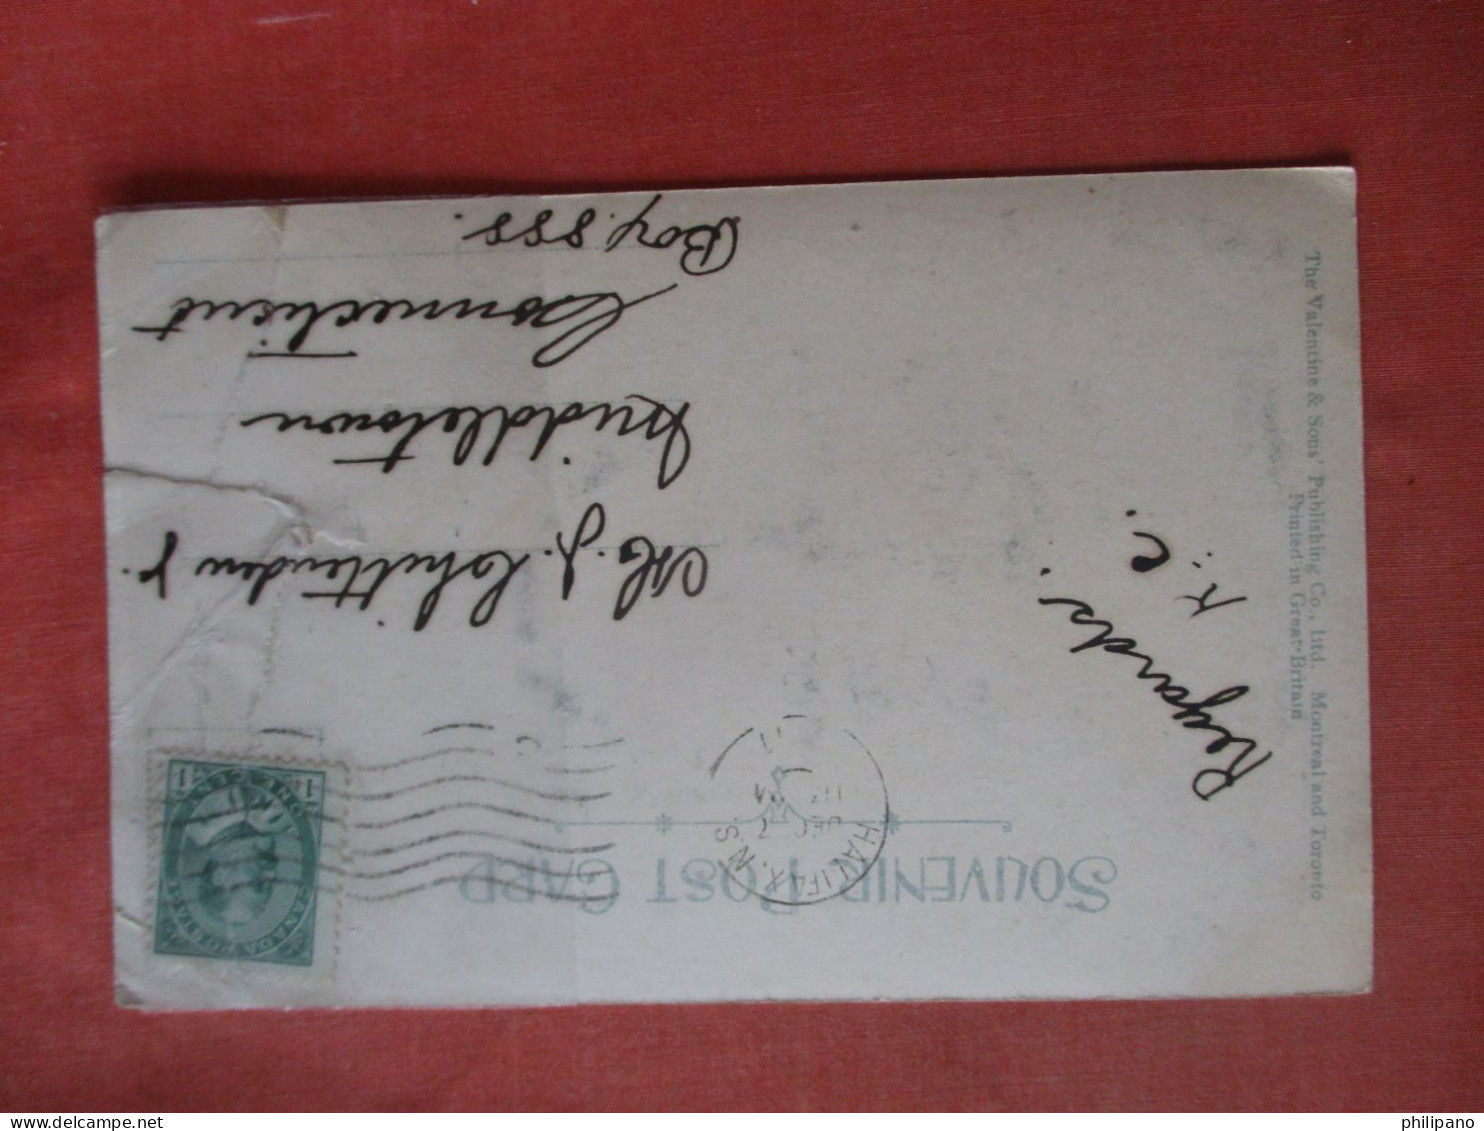 SOUVENIR POST CARD
HALIFAX, N.S.
DEC 7
CANADA POSTAGE
ONE CENT
1 1
Regards.
K. C.
J. Chittenden Jr.
Middletown
Connecticut
Box 888.
The Valentine & Sons' Publishing Co., Ltd. Montreal and Toronto
Printed in Great Britain
www.delcampe.net
philipano